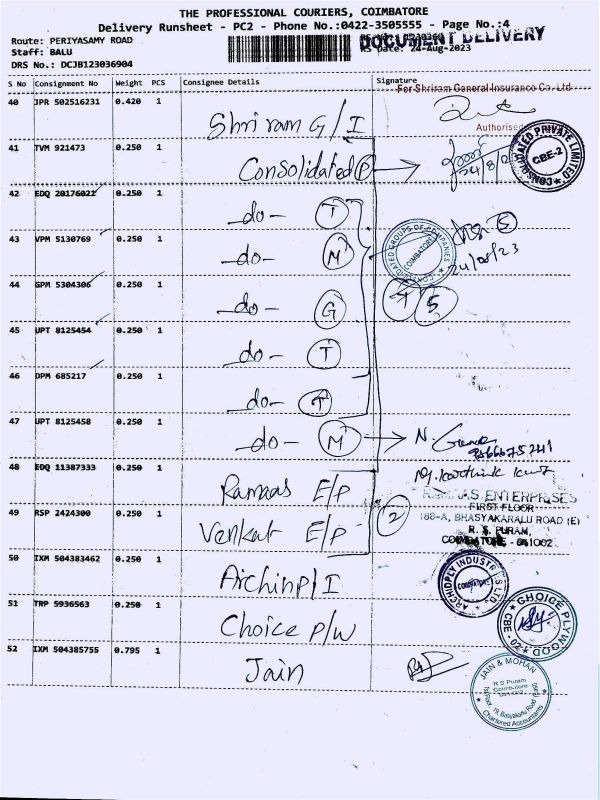 THE PROFESSIONAL COURIERS, COIMBATORE
Delivery Runsheet - PC2 - Phone No.:0422-3505555 - Page No.:4
Route: PERIYASAMY ROAD
DOCUMENT DELIVERY
Staff: BALU
RS Date: 24-Aug-2023
DRS No.: DCJB123036904
S No Consignment No Weight PCS Consignee Details Signature
For Shriram General Insurance Co. Ltd.
40 JPR 502516231 0.420 1 Shriram G/I
Authorised
41 TVM 921473 0.250 1 Consolidated P
24/8/23
CONSOLIDATED PRIVATE LIMITED
CBE-2
42 EDQ 20176021 0.250 1 -do- T
CONSOLIDATED GROUPS OF COMPANIES
COIMBATORE
43 VPM 5130769 0.250 1 -do- M
24/08/23
44 GPM 5304306 0.250 1 -do- G
5
45 UPT 8125454 0.250 1 -do- T
46 DPM 685217 0.250 1 -do- T
47 UPT 8125458 0.250 1 -do- M
N.
48 EDQ 11387333 0.250 1 Ramaas E/P
RAMAAS ENTERPRISES
FIRST FLOOR
188-A, BHASYAKARALU ROAD (E)
R. S. PURAM,
COIMBATORE - 641002
49 RSP 2424300 0.250 1 Venkat E/P
2
50 IXM 504383462 0.250 1 Archinp/I
ARCHIDPLY INDUSTRIES LTD
COIMBATORE
51 TRP 5936563 0.250 1 Choice P/W
CHOICE PLYWOOD
CBE - 02
52 IXM 504385755 0.795 1 Jain
JAIN & MOHAN
R.S Puram
Coimbatore
Chartered Accountants